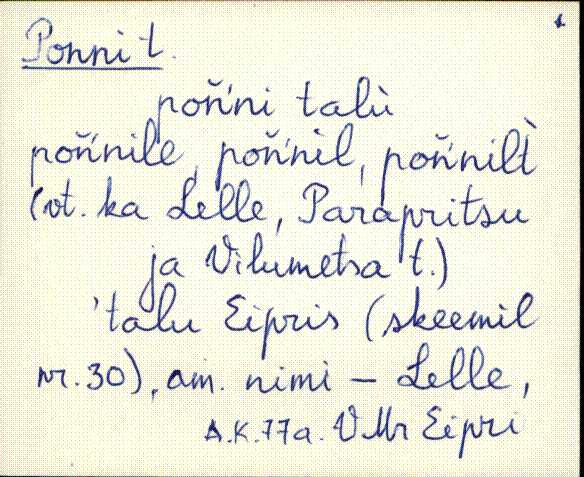 1
Ponni t.
poň'ni talù
poň'nile, poň'nìl, poň'nilt̀
(vt. ka Lelle, Parapritsu
ja Vilumetsa t.)
'talu Eipris (skeemil
nr. 30), am. nimi – Lelle,
A.K. 77a. VMr Eipri